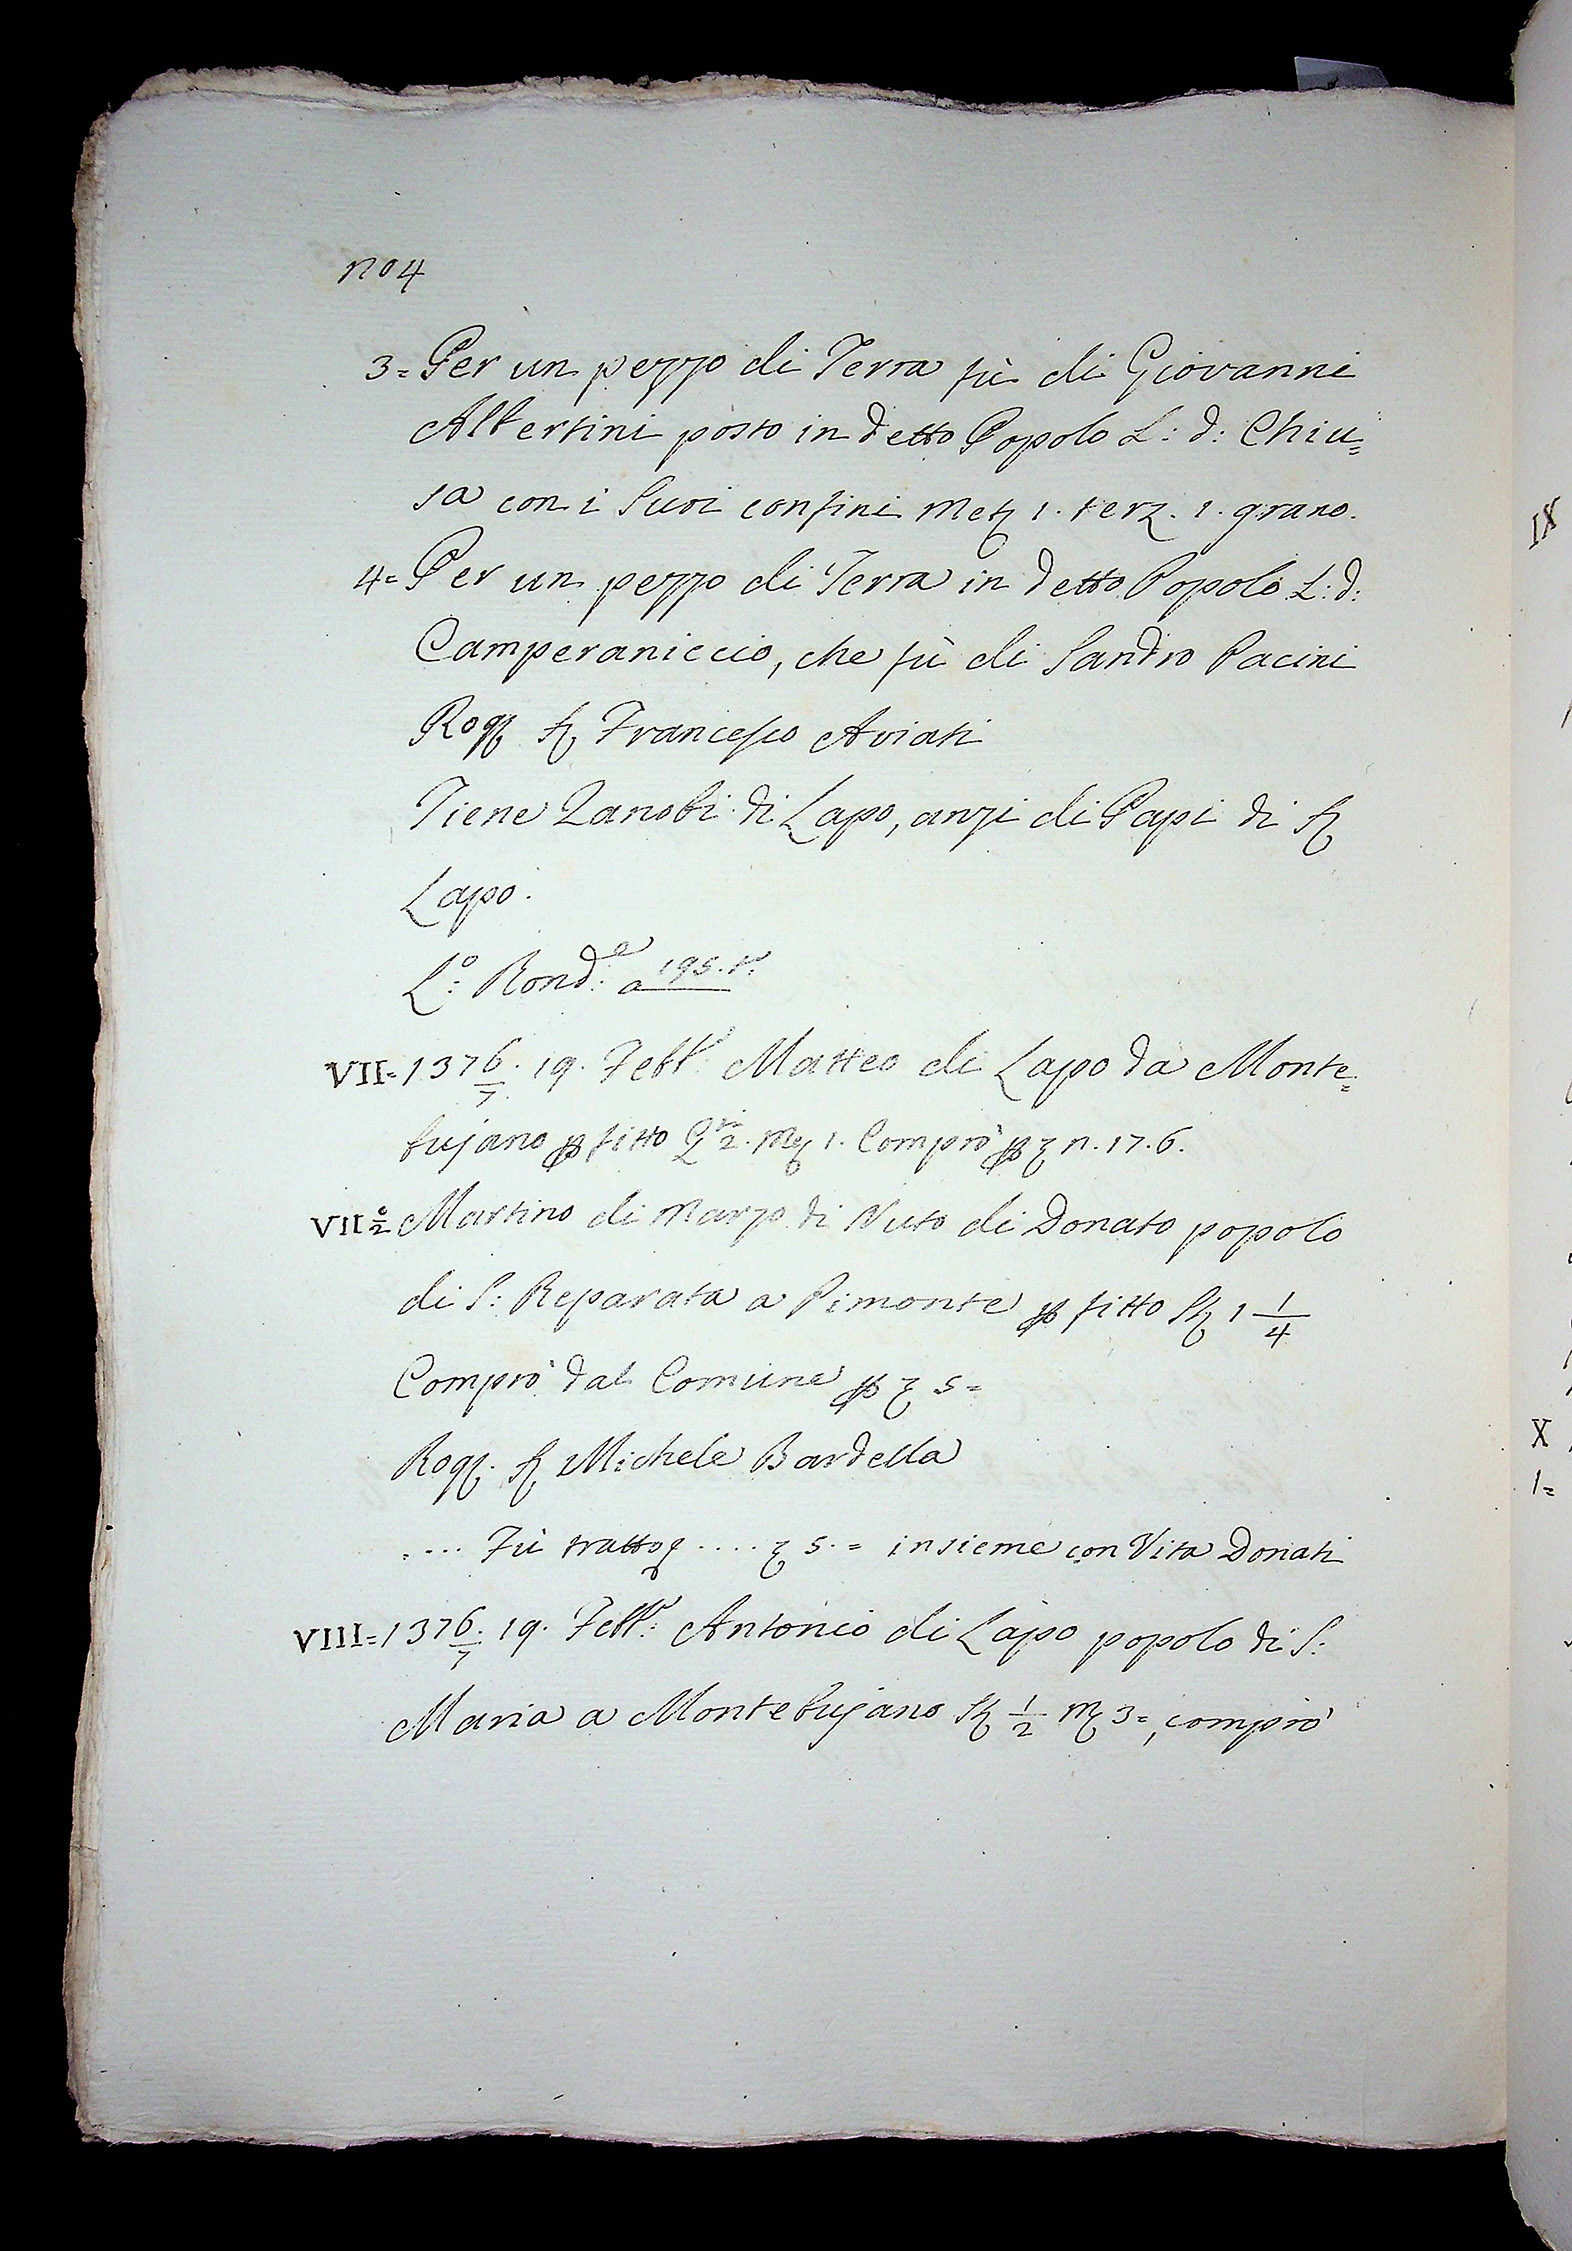 no 4
3= Per un pezzo di Terra fù di Giovanni
Albertini posto in detto Popolo L: d: Chiu=
sa con i Suoi confini Met 1. terz. 1. grano.
4= Per un pezzo di Terra in detto Popolo L: d:
Camperaniccio, che fù di Sandro Pacini
Rog. S. Francesco Aviati
Tiene Zanobi di Lapo, anzi di Papi di S.
Lapo.
L.o: Rond.e: a 195. t.
VII= 1376/7. 19. Febb.o Matteo di Lapo da Monte=
bujano p fitto 2. M 1. Comprò p n. 17. 6.
VII 2/2 Martino di Marzo di Nuto di Donato popolo
di S: Reparata a Pimonte p fitto St 1 1/4
Comprò dal Comune p 5=
Rog. S. Michele Bardella
.... Fù tratto .... 5.= insieme con Vita Donati
VIII= 1376/7. 19. Febb.o: Antonio di Lapo popolo di S:
Maria a Montebujano St 1/2 M 3=, comprò
IX
X
1=